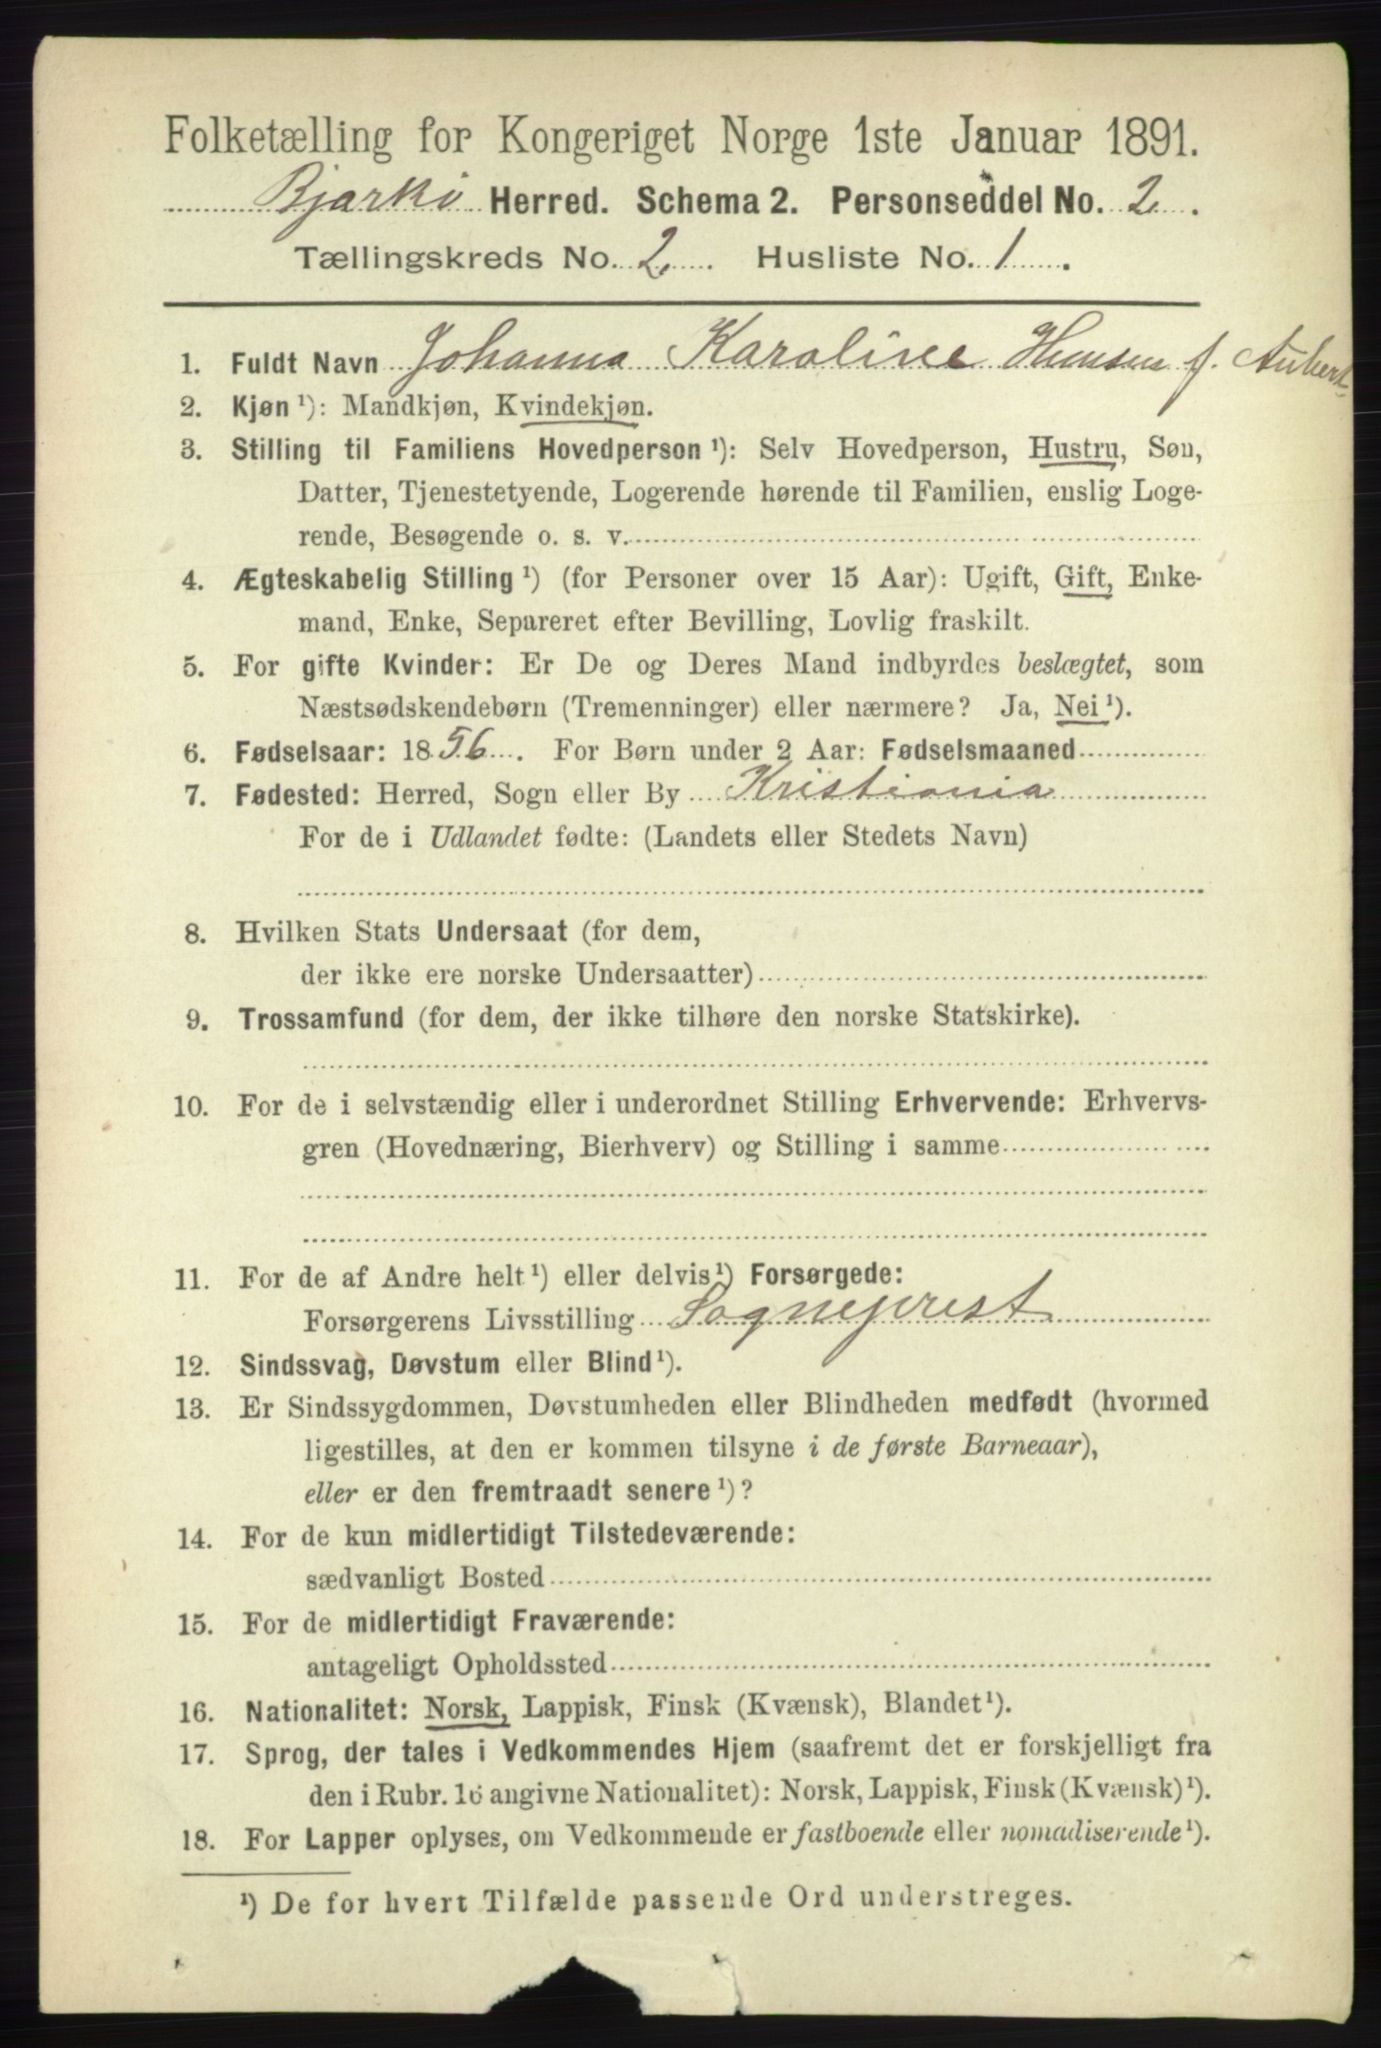 Folketælling for Kongeriget Norge 1ste Januar 1891.
Bjarkö Herred. Schema 2. Personseddel No. 2.
Tællingskreds No. 2. Husliste No. 1.
1. Fuldt Navn Johanna Karoline Hansen f. Aubert
2. Kjøn ¹): Mandkjøn, Kvindekjøn.
3. Stilling til Familiens Hovedperson ¹): Selv Hovedperson, Hustru, Søn,
Datter, Tjenestetyende, Logerende hørende til Familien, enslig Loge-
rende, Besøgende o. s. v.
4. Ægteskabelig Stilling ¹) (for Personer over 15 Aar): Ugift, Gift, Enke-
mand, Enke, Separeret efter Bevilling, Lovlig fraskilt.
5. For gifte Kvinder: Er De og Deres Mand indbyrdes beslægtet, som
Næstsødskendebørn (Tremenninger) eller nærmere? Ja, Nei ¹).
6. Fødselsaar: 1856. For Børn under 2 Aar: Fødselsmaaned
7. Fødested: Herred, Sogn eller By Kristiania
For de i Udlandet fødte: (Landets eller Stedets Navn)
8. Hvilken Stats Undersaat (for dem,
der ikke ere norske Undersaatter)
9. Trossamfund (for dem, der ikke tilhøre den norske Statskirke).
10. For de i selvstændig eller i underordnet Stilling Erhvervende: Erhvervs-
gren (Hovednæring, Bierhverv) og Stilling i samme
11. For de af Andre helt ¹) eller delvis ¹) Forsørgede:
Forsørgerens Livsstilling Sogneprest
12. Sindssvag, Døvstum eller Blind ¹).
13. Er Sindssygdommen, Døvstumheden eller Blindheden medfødt (hvormed
ligestilles, at den er kommen tilsyne i de første Barneaar),
eller er den fremtraadt senere ¹)?
14. For de kun midlertidigt Tilstedeværende:
sædvanligt Bosted
15. For de midlertidigt Fraværende:
antageligt Opholdssted
16. Nationalitet: Norsk, Lappisk, Finsk (Kvænsk), Blandet ¹).
17. Sprog, der tales i Vedkommendes Hjem (saafremt det er forskjelligt fra
den i Rubr. 16 angivne Nationalitet): Norsk, Lappisk, Finsk (Kvænsk) ¹).
18. For Lapper oplyses, om Vedkommende er fastboende eller nomadiserende ¹).
¹) De for hvert Tilfælde passende Ord understreges.